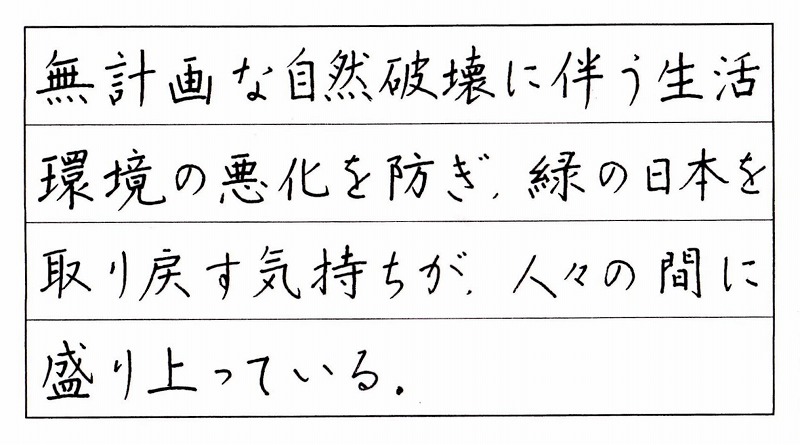 無計画な自然破壊に伴う生活
環境の悪化を防ぎ，緑の日本を
取り戻す気持ちが，人々の間に
盛り上っている．